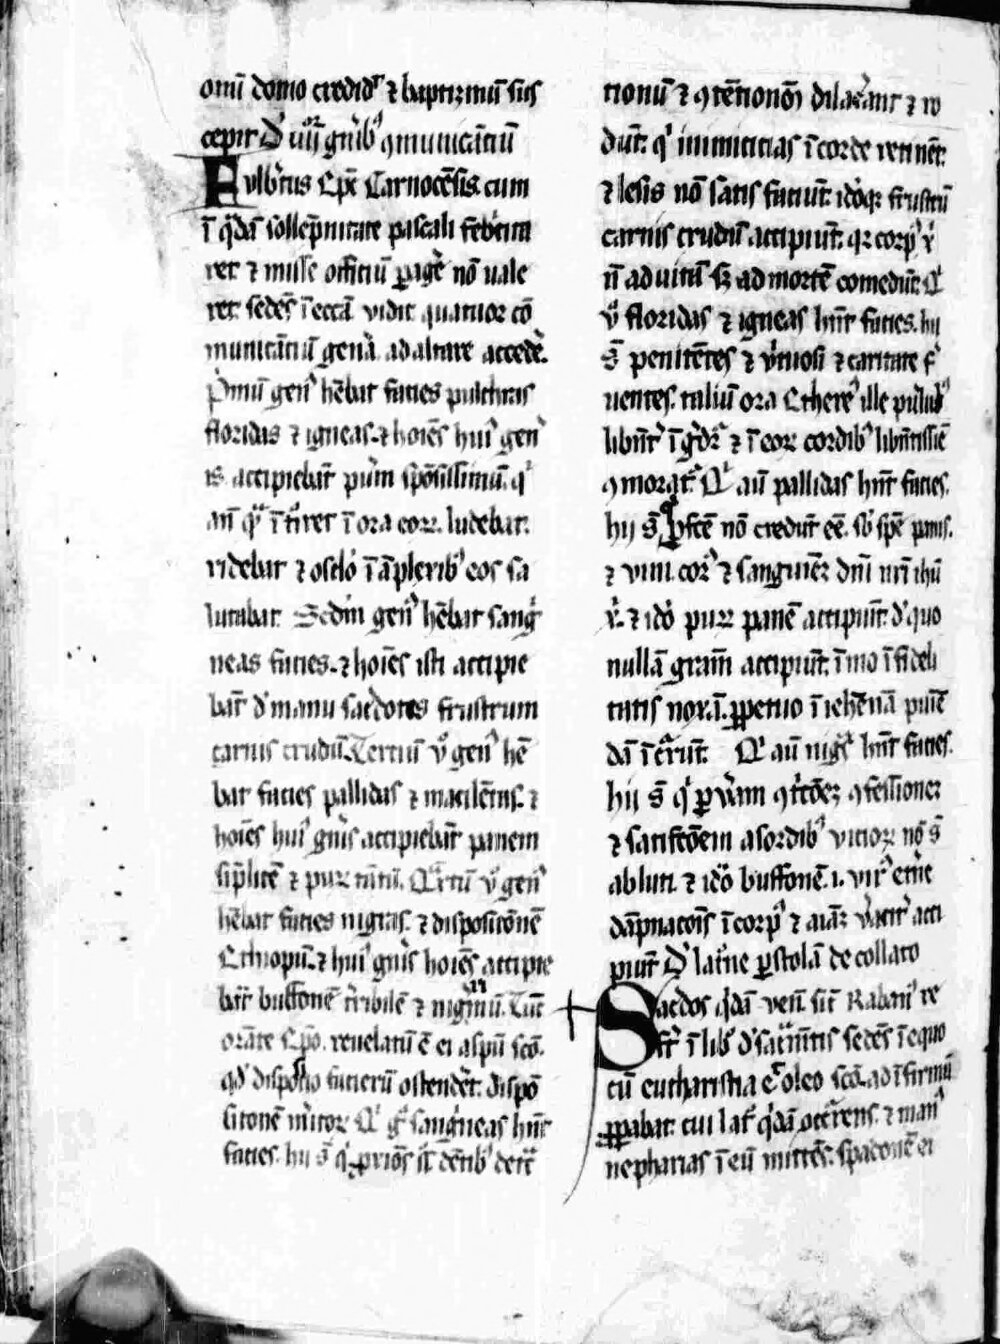 omī domo credidˀ ⁊ baptizmū sus
cepit Dˀ uijᵒʳ gnˀibˀ ꝯmunicātiū
Fulbˀtus Epˀc Carnocēsis cum
ī q̄dā sollēpnitate pascali febˀcita
ret ⁊ misse officiū ꝑagˀe nō uale
ret sedēs ī eccā vidit quatuor cō
municātiū genˀa ad altare accedeˀ.
Pˀmū genˀ hēbat facies pulchras
floridas ⁊ igneas. ⁊ hoīes huiˀ genˀ
is accipiebāt puˀm spōsissimū. qˀ
an̄ qˀ ītˀret ī ora eoꝝ. ludebat.
ridebat ⁊ osclˀo ī āplexibˀ eos sa
lutabat. Scdˀm genˀ hēbat sangˀ
neas facies. ⁊ hoīes isti accipie
bāt dˀ manu sacˀdotes frustrum
carnis crudū. Tertiū vˀ genˀ hē
bat facies pallidas ⁊ macilētas. ⁊
hoīes huiˀ gnˀis accipiebāt panem
siplˀicē ⁊ puꝝ tātū. Qˀrtū vˀ genˀ
hēbat facies nigras. ⁊ disposicōnē
Ethiopū. ⁊ huiˀ gnˀis hoīes accipie
bāt buffonē tˀribilē ⁊ nigrˀimū. Tūc
orāte Epˀo. reuelatū ē ei a spū scō.
qdˀ dispositio facierū ostendˀet. dispō
sitonē mˀitoꝝ Qˀ gˀ sanguˀneas hn̄t
facies. hii s̄ qˀ ꝓximos suˀ dētibˀ detˀc
tionū ⁊ ꝯtētionū dilacˀant ⁊ ro
dūt. qˀ inimicitias ī corde retinēt.
⁊ lesis nō satis faciūt. idoˀq; frustrū
carnis crudū accipiūt. qꝛ corpˀ xˀ
n̄ ad uitā sꝫ ad mortē comedūt. Qˀ
vˀ floridas ⁊ igneas hn̄t facies. hii
s̄ penitētes ⁊ vˀtuosi ⁊ caritate fˀ
uentes. taliū ora Ethereˀ ille pulˀ
libn̄t ī gˀdˀr ⁊ ī eoꝝ cordibˀ libn̄tissīe
ꝯmoratˀ. Qˀ aū pallidas hn̄t facies.
hij s̄ ꝑfcē nō credūt eē. sbˀ spē panis.
⁊ vini. corˀ ⁊ sanguinē dn̄i nr̄i ihū
xˀ. ⁊ idˀo puꝝ panē accipiūt. dˀ quo
nullā gram̄ accipiūt. īmo īfideli
tatis noxā. ꝑpetuo ī iehēnā puniē
dā īcˀrūt. Qˀ aū nigˀs hn̄t facies.
hii s̄ qˀ ꝑ vˀam ꝯtˀcōēꝫ ꝯfessionēꝫ
⁊ satisfcōem a sordibˀ vitioꝝ nō s̄
abluti. ⁊ idˀo buffonē. i. virˀ etˀne
dāpnacōis ī corpˀ ⁊ aiāꝫ vˀacitˀ acci
piūt Dˀ latˀne ꝑ stolā de collato
Sacˀdos qˀdā venˀ sit Rabaniˀ re
fˀt ī libˀ dˀ sacˀmētis sedēs ī equo
cū eucharistia etˀ oleo scō. ad īfirmū
ꝓꝑabat. cui latˀ qˀdā occˀrens. ⁊ manˀ
nepharias ī eū mittēs. spacōnē ei